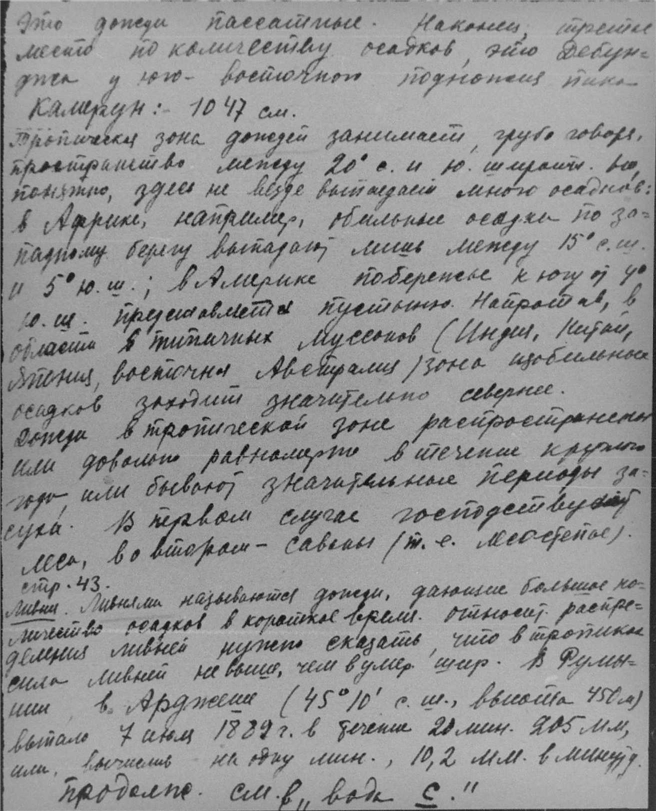 Это дожди пассатные. Наконец, третье
место по количеству осадков, это Дебун-
джа у юго-восточного подножия пика
Камерун: - 1047 см.
Тропическая зона дождей занимает, грубо говоря,
пространство между 20° с. и ю. широт. Но,
понятно, здесь не везде выпадает много осадков:
в Африке, например, обильные осадки по за-
падному берегу выпадают лишь между 15° с.ш.
и 5° ю.ш.; в Америке побережье к югу от 4°
ю.ш. представляется пустынею. Напротив, в
области типичных муссонов (Индия, Китай,
Япония, восточная Австралия) зона изобильных
осадков заходит значительно севернее.
Дожди в тропической зоне распространены
или довольно равномерно в течение круглого
года, или бывают значительные периоды за-
сухи. В первом случае господствуют
леса, во втором - саваны (т.е. лесостепье).
стр. 43.
Ливни. Ливнями называются дожди, дающие большое ко-
личество осадков в короткое время. Относит. распре-
деления ливней нужно сказать, что в тропиках
сила ливней не выше, чем в умер. шир. В Румы-
нии в Арджеше (45°10' с.ш., высота 450 м)
выпало 7 июля 1889 г. в течение 20 мин. 205 мм,
или, вычислив на одну мин., 10,2 мм. в минуту.
продолж. см. в „вода С."